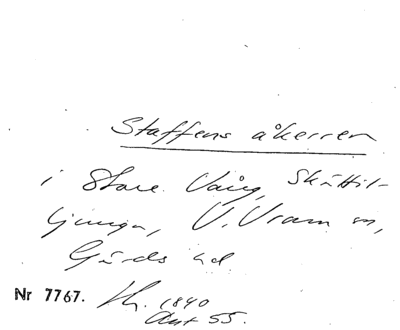 Staffens åkerren
i Store Vång, Skättil-
ljunga, V. Vram sn,
Gärds hd.
Nr 7767. 1840
Akt 55.